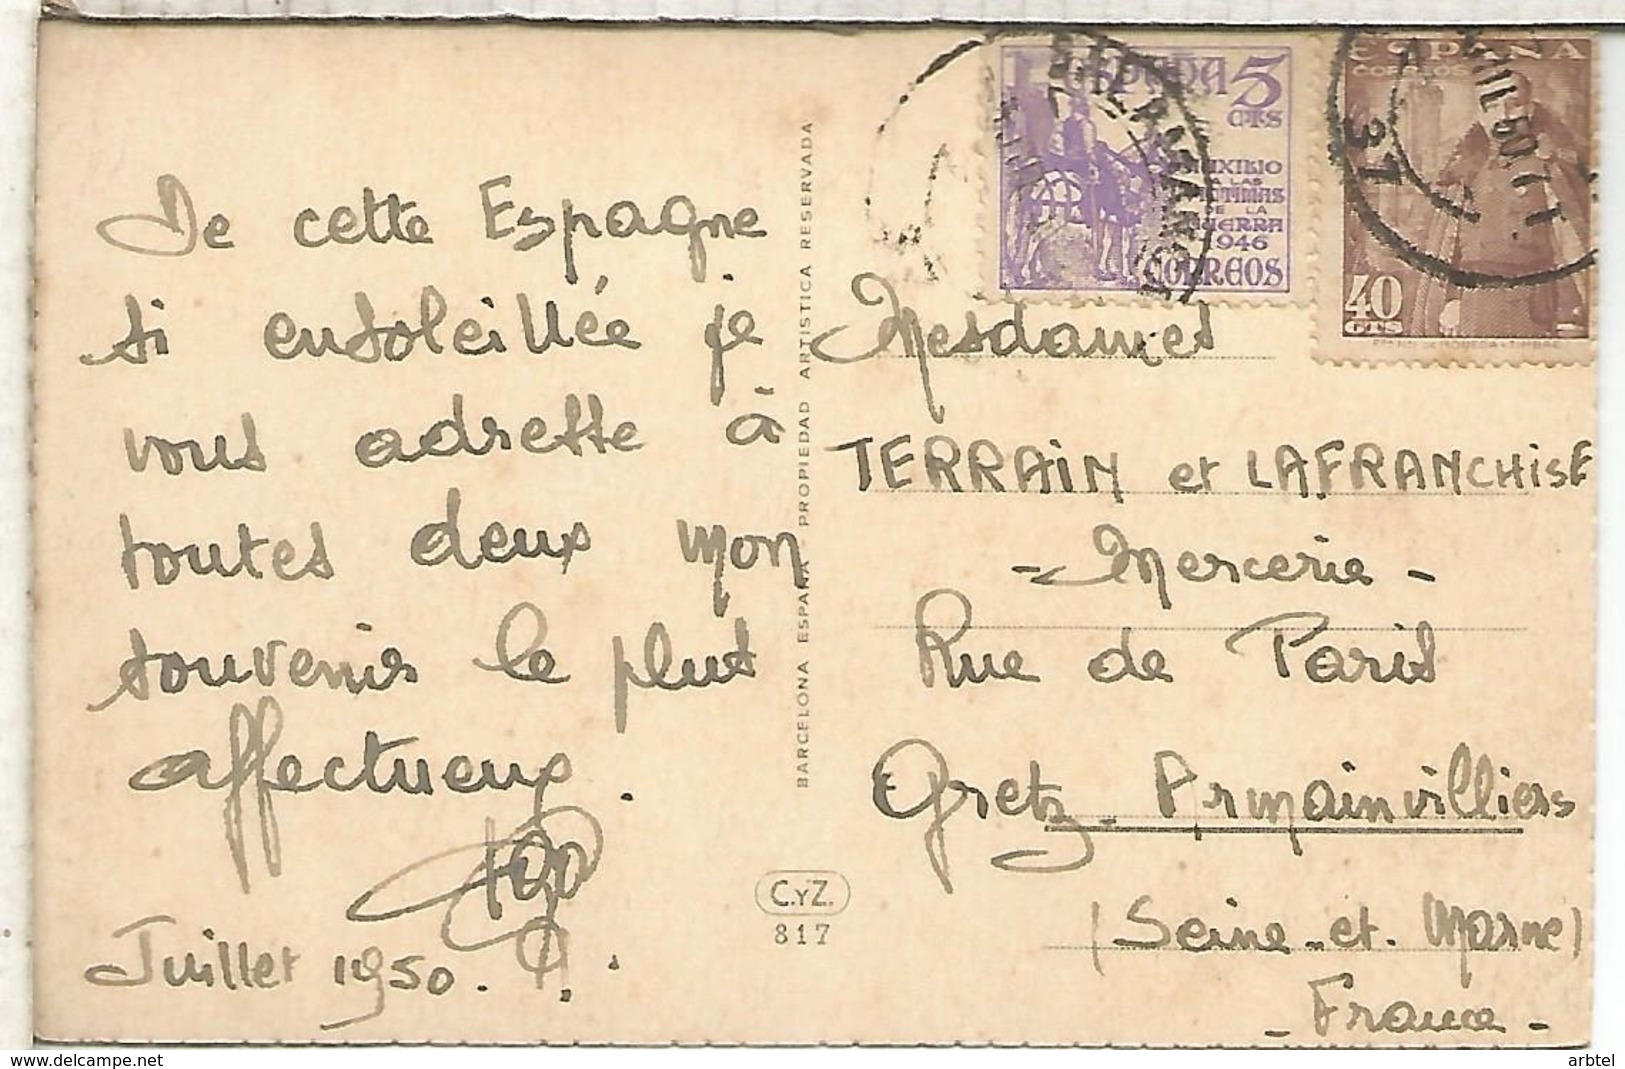 De cette Espagne
si ensoleillée je
vous adresse à
toutes deux mon
souvenir le plus
affectueux.
Juillet 1950.
BARCELONA ESPAÑA - PROPIEDAD ARTISTICA RESERVADA
C.YZ.
817
ESPAÑA 5
CTS
AUXILIO
A LAS
VICTIMAS
DE LA
GUERRA
1946
CORREOS
ESPAÑA
CORREOS
40
CTS
31
Mesdames
TERRAIN et LAFRANCHISE
- Mercerie -
Rue de Paris
Gretz-Armainvilliers
(Seine-et-Marne)
- France -
arbtel